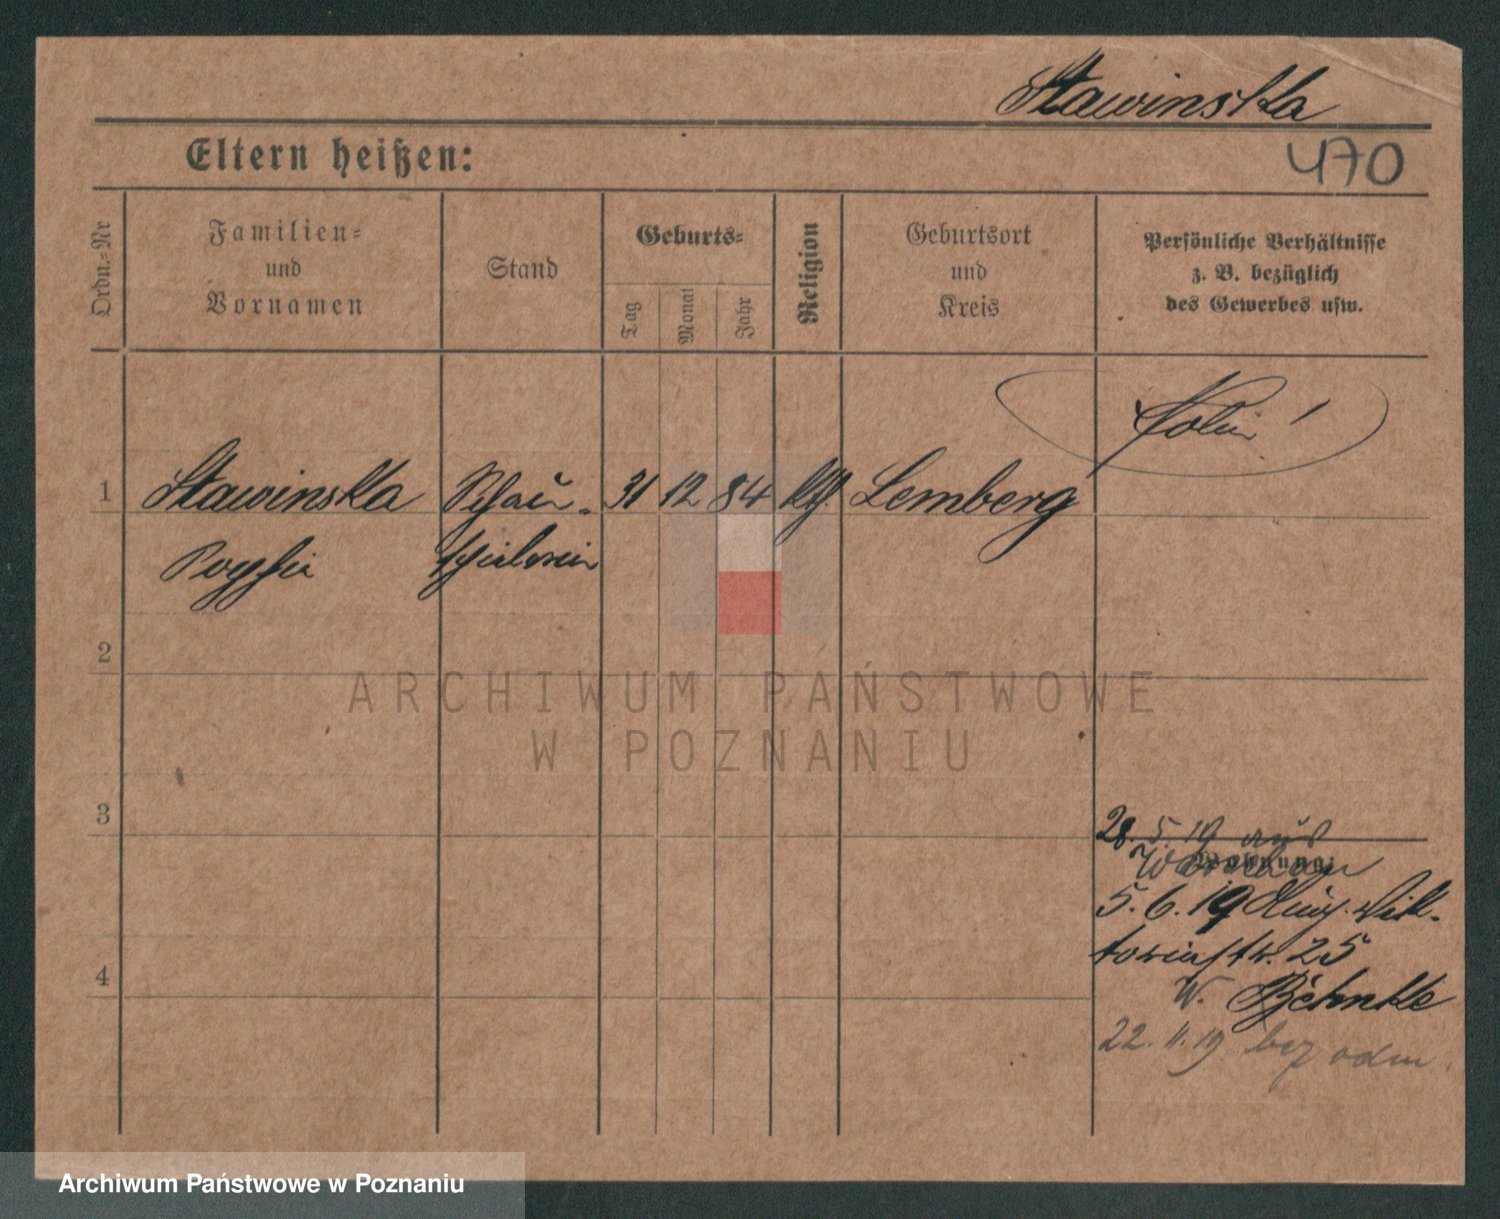 Stawinska
470
Eltern heißen:
Ordn.-Nr
Familien-
und
Vornamen
Stand
Geburts-
Tag
Monat
Jahr
Religion
Geburtsort
und
Kreis
Persönliche Verhältnisse
z. B. bezüglich
des Gewerbes usw.
1 Stawinska Schau- 31 12 84 Lemberg
spielerin
2
3
28.5.19 aus
Wohnung:
Warschau
5.6.19 Vik-
toriastr. 25
W. Behnke
4
22.11.19
ARCHIWUM PAŃSTWOWE
W POZNANIU
Archiwum Państwowe w Poznaniu